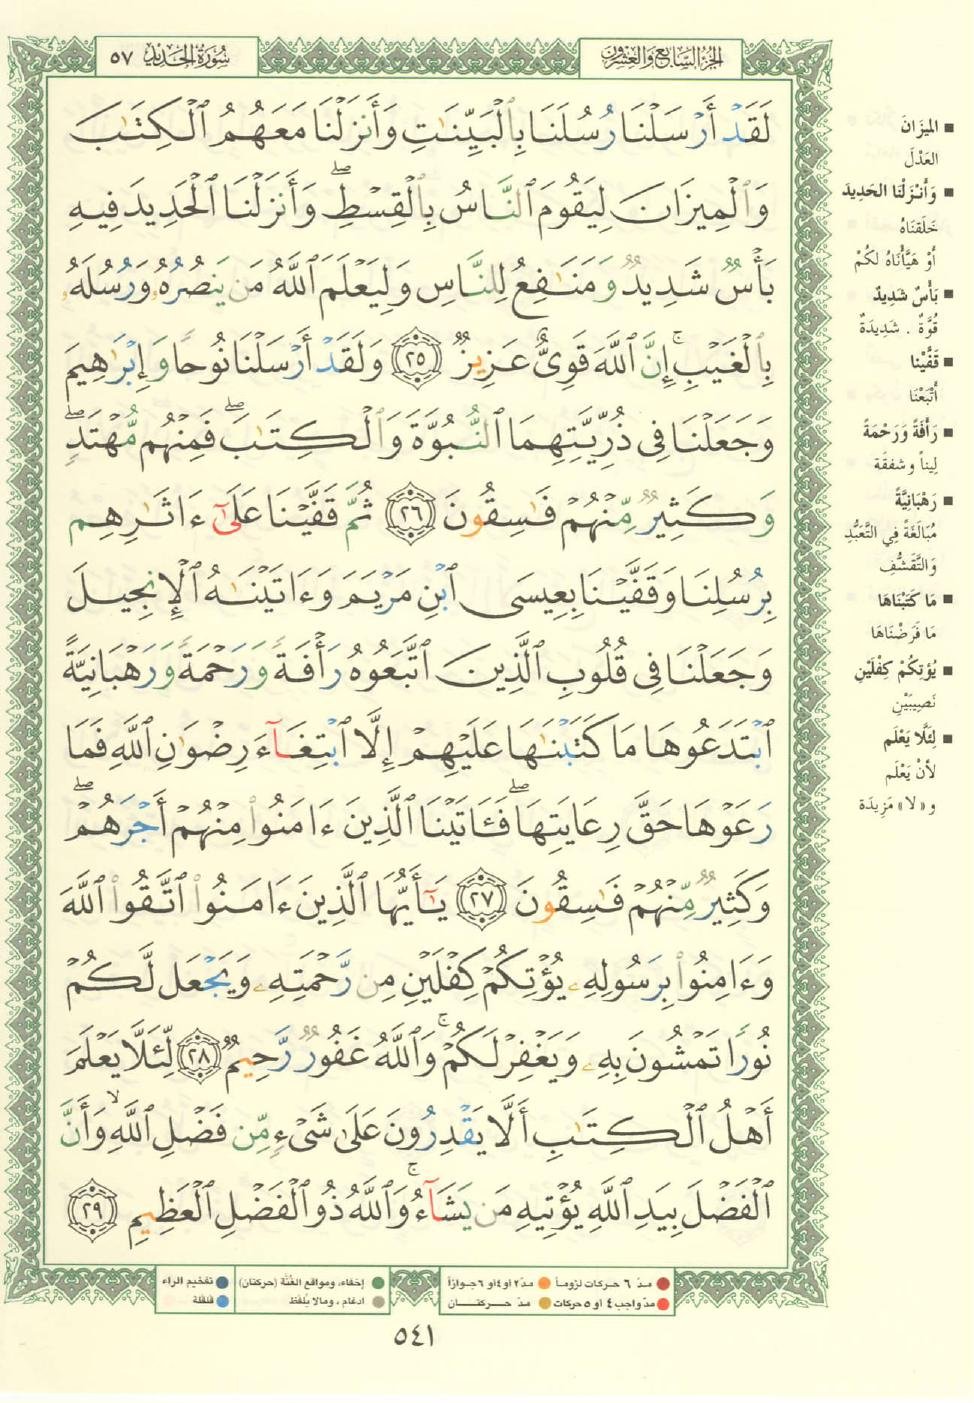 سُورَةُ الحَدِيدِ ٥٧
الجُزْءُ السَّابِعُ وَالعِشْرُونَ
لَقَدْ أَرْسَلْنَا رُسُلَنَا بِٱلْبَيِّنَٰتِ وَأَنزَلْنَا مَعَهُمُ ٱلْكِتَٰبَ
وَٱلْمِيزَانَ لِيَقُومَ ٱلنَّاسُ بِٱلْقِسْطِ ۖ وَأَنزَلْنَا ٱلْحَدِيدَ فِيهِ
بَأْسٌ شَدِيدٌ وَمَنَٰفِعُ لِلنَّاسِ وَلِيَعْلَمَ ٱللَّهُ مَن يَنصُرُهُۥ وَرُسُلَهُۥ
بِٱلْغَيْبِ ۚ إِنَّ ٱللَّهَ قَوِىٌّ عَزِيزٌ ٢٥ وَلَقَدْ أَرْسَلْنَا نُوحًا وَإِبْرَٰهِيمَ
وَجَعَلْنَا فِى ذُرِّيَّتِهِمَا ٱلنُّبُوَّةَ وَٱلْكِتَٰبَ ۖ فَمِنْهُم مُّهْتَدٍ ۖ
وَكَثِيرٌ مِّنْهُمْ فَٰسِقُونَ ٢٦ ثُمَّ قَفَّيْنَا عَلَىٰٓ ءَاثَٰرِهِم
بِرُسُلِنَا وَقَفَّيْنَا بِعِيسَى ٱبْنِ مَرْيَمَ وَءَاتَيْنَٰهُ ٱلْإِنجِيلَ
وَجَعَلْنَا فِى قُلُوبِ ٱلَّذِينَ ٱتَّبَعُوهُ رَأْفَةً وَرَحْمَةً وَرَهْبَانِيَّةً
ٱبْتَدَعُوهَا مَا كَتَبْنَٰهَا عَلَيْهِمْ إِلَّا ٱبْتِغَآءَ رِضْوَٰنِ ٱللَّهِ فَمَا
رَعَوْهَا حَقَّ رِعَايَتِهَا ۖ فَـَٔاتَيْنَا ٱلَّذِينَ ءَامَنُوا۟ مِنْهُمْ أَجْرَهُمْ ۖ
وَكَثِيرٌ مِّنْهُمْ فَٰسِقُونَ ٢٧ يَٰٓأَيُّهَا ٱلَّذِينَ ءَامَنُوا۟ ٱتَّقُوا۟ ٱللَّهَ
وَءَامِنُوا۟ بِرَسُولِهِۦ يُؤْتِكُمْ كِفْلَيْنِ مِن رَّحْمَتِهِۦ وَيَجْعَل لَّكُمْ
نُورًا تَمْشُونَ بِهِۦ وَيَغْفِرْ لَكُمْ ۚ وَٱللَّهُ غَفُورٌ رَّحِيمٌ ٢٨ لِّئَلَّا يَعْلَمَ
أَهْلُ ٱلْكِتَٰبِ أَلَّا يَقْدِرُونَ عَلَىٰ شَىْءٍ مِّن فَضْلِ ٱللَّهِ ۙ وَأَنَّ
ٱلْفَضْلَ بِيَدِ ٱللَّهِ يُؤْتِيهِ مَن يَشَآءُ ۚ وَٱللَّهُ ذُو ٱلْفَضْلِ ٱلْعَظِيمِ ٢٩
■ المِيزَانَ
العَدْلَ
■ وَأَنْزَلْنَا الحَدِيدَ
خَلَقْنَاهُ
أَوْ هَيَّأْنَاهُ لَكُمْ
■ بَأْسٌ شَدِيدٌ
قُوَّةٌ . شَدِيدَةٌ
■ قَفَّيْنَا
أَتْبَعْنَا
■ رَأْفَةً وَرَحْمَةً
لِيناً وشفقَة
■ رَهْبَانِيَّةً
مُبَالَغَةً فِي التَّعَبُّدِ
وَالتَّقَشُّفِ
■ مَا كَتَبْنَاهَا
مَا فَرَضْنَاهَا
■ يُؤْتِكُمْ كِفْلَيْنِ
نَصِيبَيْنِ
■ لِئَلَّا يَعْلَمَ
لأنْ يَعْلَم
و «لا» مَزِيدَة
مدّ ٦ حركات لزوماً
مدّ ٢ او ٤ او ٦ جوازاً
مدّ واجب ٤ او ٥ حركات
مدّ حركتان
إخفاء، ومواقع الغُنَّة (حركتان)
ادغام ، ومالا يُلفظ
تفخيم الراء
قلقلة
٥٤١